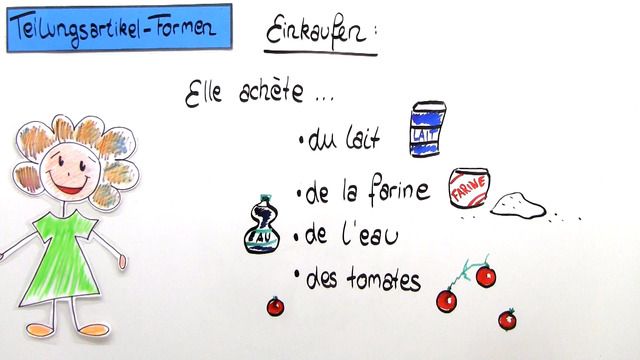 Teilungsartikel-Formen
Einkaufen:
Elle achète ...
• du lait
LAIT
• de la farine
FARINE
• de l'eau
EAU
• des tomates